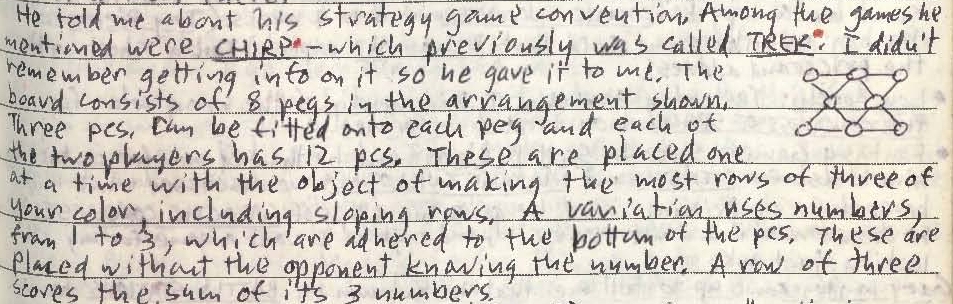 He told me about his strategy game convention. Among the games he
mentioned were CHIRP - which previously was called TREK. I didn't
remember getting info on it so he gave it to me. The
board consists of 8 pegs in the arrangement shown.
Three pcs. can be fitted onto each peg and each of
the two players has 12 pcs. These are placed one
at a time with the object of making the most rows of three of
your color, including sloping rows. A variation uses numbers,
from 1 to 3, which are adhered to the bottom of the pcs. These are
placed without the opponent knowing the number. A row of three
scores the sum of its 3 numbers.